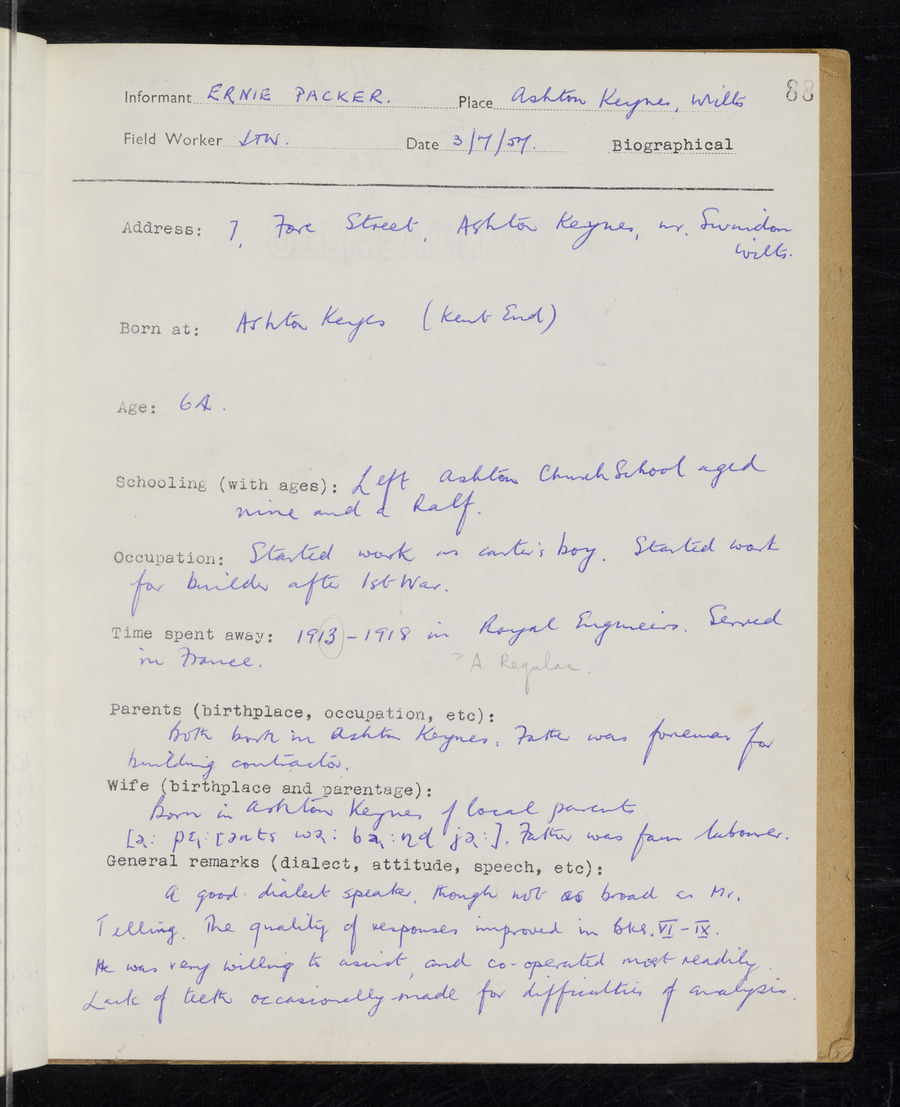 Informant ERNIE PACKER. Place Ashton Keynes, Wilts 88
Field Worker Date 3/7/57. Biographical
Address: 7, Fore Street, Ashton Keynes, nr. Swindon
Wilts.
Born at: Ashton Keynes (Kent End)
Age: 64.
Schooling (with ages): Left Ashton Church School aged
nine and a half.
Occupation: Started work as carter's boy. Started work
for builder after 1st War.
Time spent away: 1913-1918 in Royal Engineers. Served
in France. ? A Regular.
Parents (birthplace, occupation, etc):
Both born in Ashton Keynes. Father was foreman for
building contractor.
Wife (birthplace and parentage):
Born in Ashton Keynes of local parents
Father was farm labourer.
General remarks (dialect, attitude, speech, etc):
A good dialect speaker, though not as broad as Mr.
Telling. The quality of responses improved in Bks. VI-IX.
He was very willing to assist, and co-operated most readily.
Lack of teeth occasionally made for difficulties of analysis.